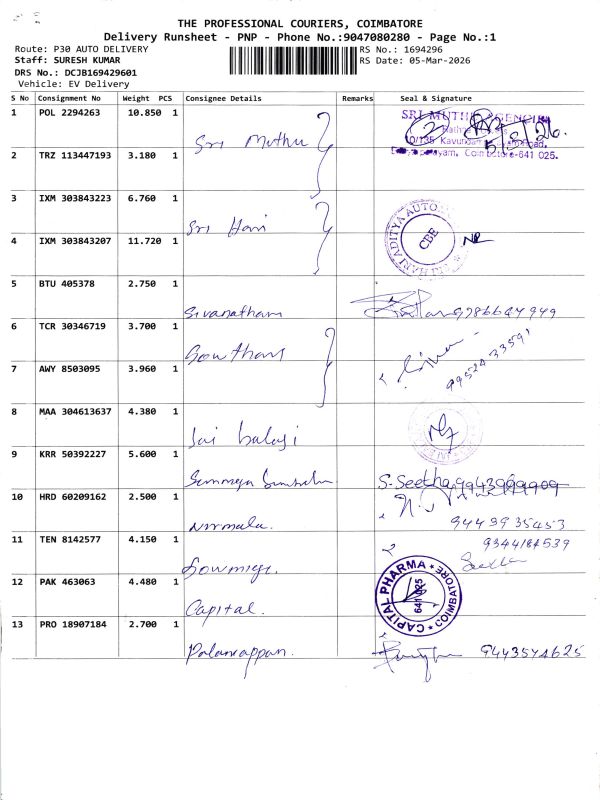 THE PROFESSIONAL COURIERS, COIMBATORE
Delivery Runsheet - PNP - Phone No.:9047080280 - Page No.:1
Route: P30 AUTO DELIVERY
RS No.: 1694296
Staff: SURESH KUMAR
RS Date: 05-Mar-2026
DRS No.: DCJB169429601
Vehicle: EV Delivery
S No Consignment No Weight PCS Consignee Details Remarks Seal & Signature
1 POL 2294263 10.850 1 Sri Muthu SRI MUTHU AGENCIES 5/3/26.
641 025.
2 TRZ 113447193 3.180 1
3 IXM 303843223 6.760 1 Sri Hari
4 IXM 303843207 11.720 1 SRI HARI ADITYA AUTO CBE
5 BTU 405378 2.750 1 Sivanatham 9786647949
6 TCR 30346719 3.700 1 Gowtham
7 AWY 8503095 3.960 1 9952433591
8 MAA 304613637 4.380 1 Sai balaji
9 KRR 50392227 5.600 1 S-Seetha 9943999909
10 HRD 60209162 2.500 1 Nirmala. 9443935453
11 TEN 8142577 4.150 1 Sowmiya. 9344184539
12 PAK 463063 4.480 1 Capital. CAPITAL PHARMA COIMBATORE 641 025
13 PRO 18907184 2.700 1 Palaniappan. 9443574625